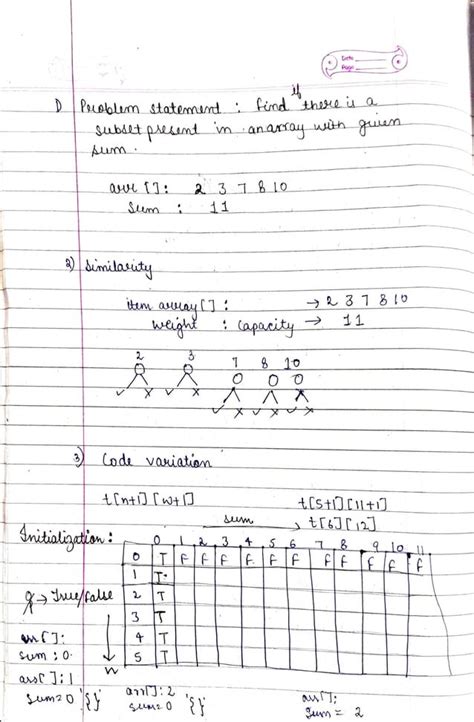 Date
Page
1) Problem statement : find if there is a
subset present in an array with given
sum.
arr []: 2 3 7 8 10
Sum : 11
2) Similarity
item array[] : → 2 3 7 8 10
weight : Capacity → 11
2 3 7 8 10
✓ x ✓ x ✓ x ✓ x ✓ x
3) Code variation
t[n+1][w+1] t[5+1][11+1]
sum → t[6][12]
Initialization :
0 1 2 3 4 5 6 7 8 9 10 11
0 T F F F F F F F F F F F
1 T
2 T
3 T
4 T
5 T
→ True/false
n
arr[]:
sum : 0
arr[] : 1
sum = 0 '{}'
arr[] : 2
sum = 0 '{}'
arr[]:
Sum = 2